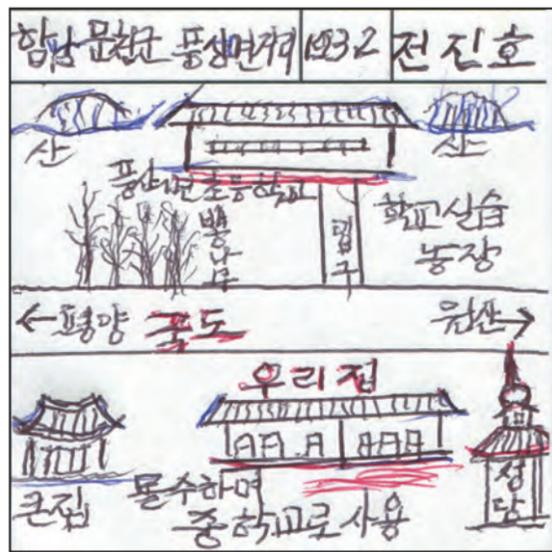 함남 문천군 풍상면 1932 전진호
산 산
풍상면초등학교
뽕나무
입구
학교실습
농장
←평양 국도 원산→
우리집
큰집
몰수하며
중학교로 사용
성당